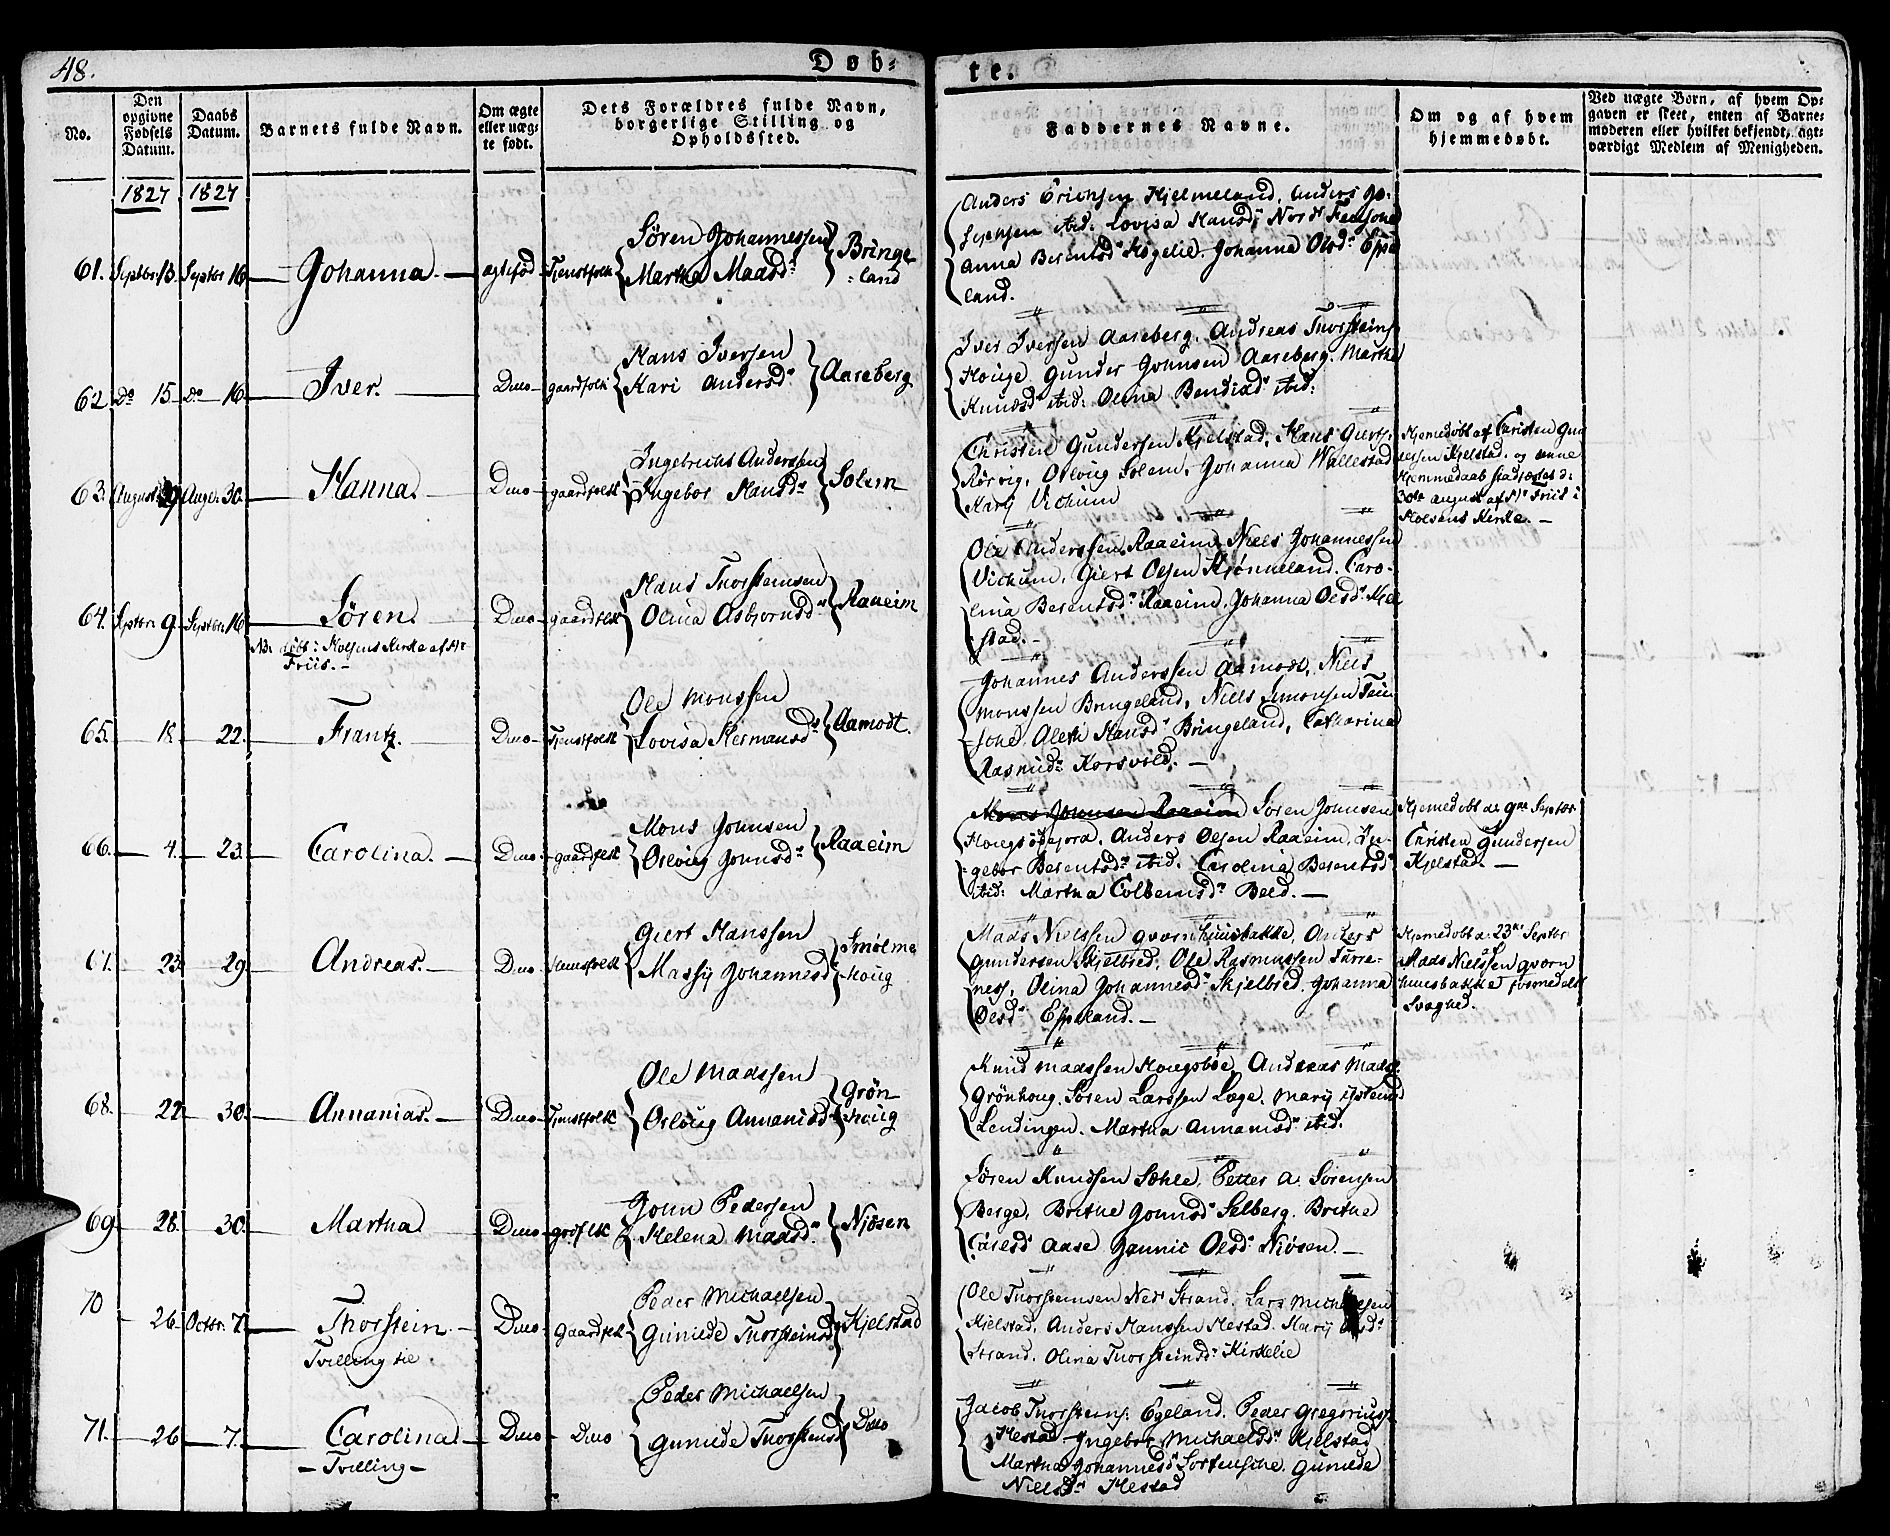 48.
Døb-
te.
No.
Den opgivne Fødsels Datum.
Daabs Datum.
Barnets fulde Navn.
Om ægte eller uægte født.
Dets Forældres fulde Navn, borgerlige Stilling og Opholdssted.
Faddernes Navne.
Om og af hvem hjemmedøbt.
Ved uægte Børn, af hvem Opgaven er skeet, enten af Barnemoderen eller hvilket bekjendt, agtværdigt Medlem af Menigheden.
1827 1827
61. Septbr 13. Septbr 16 Johanna. ægtefød Tjenstfolk Søren Johannessen Martha Maadsdr Bringeland
Anders Erichsen Hjelmeland, Anders Josephsen ibid: Lovisa Hansdr Nordr
anna Berentsdr Høgelie. Johanna Olsdr Espeland.
62. Do 15. Do 16. Iver. Duo gaardfolk Hans Iversen Kari Andersdr Aareberg
Iver Iversen Aareberg. Andreas Thorsteins:
Houge Gunder Johnsen Aareberg. Martha
Knudsdr ibid: Olina Bendixdr ibid:
63. August 29 Augst 30. Hanna. Duo gaardfolk Ingebricht Anderssen Ingebor Hansdr Solem
Christen Gundersen Kjelstad, Hans Giertss:
Rørvig, Osløug Solem. Johanna Wallestad
Marj Vichum
Hjemedøbt af Christen Gundersen Kjelstad. og denne
Hjemmedaab stadfæstet d:
30te august af Hr Friis i
Holsens Kirke. —
64. Septbr 9. Septbr 16 Søren. Duo gaardfolk Hans Thorsteinsen Olina Asbjornsdr Raaeim
NB. døbt i Holsens Kirke af Hr
Friis. —
Ole Anderssen Raaeim. Niels Johannessen
Vichum, Giert Olsen Kjønneland. Caro-
lina Berentsdr Raaeim. Johanna Olsdr Kjel
stad. —
65. 18. 22. Frantz. Duo Tjenstfolk Ole Monssen Lovisa Hermansdr Aamodt.
Johannes Anderssen Aamodt, Niels
Monssen Bringeland, Niels Simonsen
Aleth Hansdr Bringeland, Catharina
Rasmusdr Korsvold. —
66. 4. 23. Carolina. Duo gaardfolk Mons Johnsen Oslöug Johnsdr Raaeim
Mons Johnsen Raaeim Søren Johnsen
Anders Olsen Raaeim, In-
gebor Berentsdr ibid. Carolina Berentsdr
ibid: Martha Colbensdr Beld. —
Hjemedøbt d: 9de Septbr
Christen Gundersen
Kjelstad. —
67. 23. 29. Andreas. Duo Huusfolk Giert Hanssen Massij Johannesdr
Mads Nielssen qværnhuusbakke, Anders
Gundersen Skjelbred. Ole Rasmussen Turre-
ness, Olina Johannesdr Skjelbred. Johanna
Olsdr Espeland. —
Hjemedøbt d: 23de Septbr
Mads Nielssen qværn
huusbakke formedelst
Svaghed.
68. 22 30. Annanias. Duo Tjenstfolk Ole Madssen Oslöug Annaniædr Grönhoug
Knud Madssen Hougsbøe, Andreas Mads:
Grönhoug. Søren Larssen Læge. Marij
Lendingen. Martha Annaniædr ibid:
69. 28. 30. Martha. Duo grdfolk John Pedersen Helena Madsdr. Njösen
Søren Knudsen Sæhle. Petter A: Sörensen
Berge, Brithe Johnsdr Selberg. Brithe
Aase Jannic Olsdr Njösen. —
70 26. Octbr. 7. Thorstein. Duo Gaardfolk Peder Michaelsen Guniede Thorsteinsdr Kjelstad
Tvilling til
Ole Thorsteinsen Nedr Strand. Lars Michaelsen
Kjelstad, Anders Hanssen Hestad. Marij Olsdr
Strand. Olina Thorsteinsdr Kirkelie
71. 26 7. Carolina. Duo Duo Peder Michaelsen Guniede Thorsteinsdr Duo
— Tvilling —
Jacob Thorsteins: Egeland. Peder Gregoriuss:
Hestad Ingebor Michaelsdr Kjelstad
Martha Johannesdr Guniede
Nielsdr Hestad